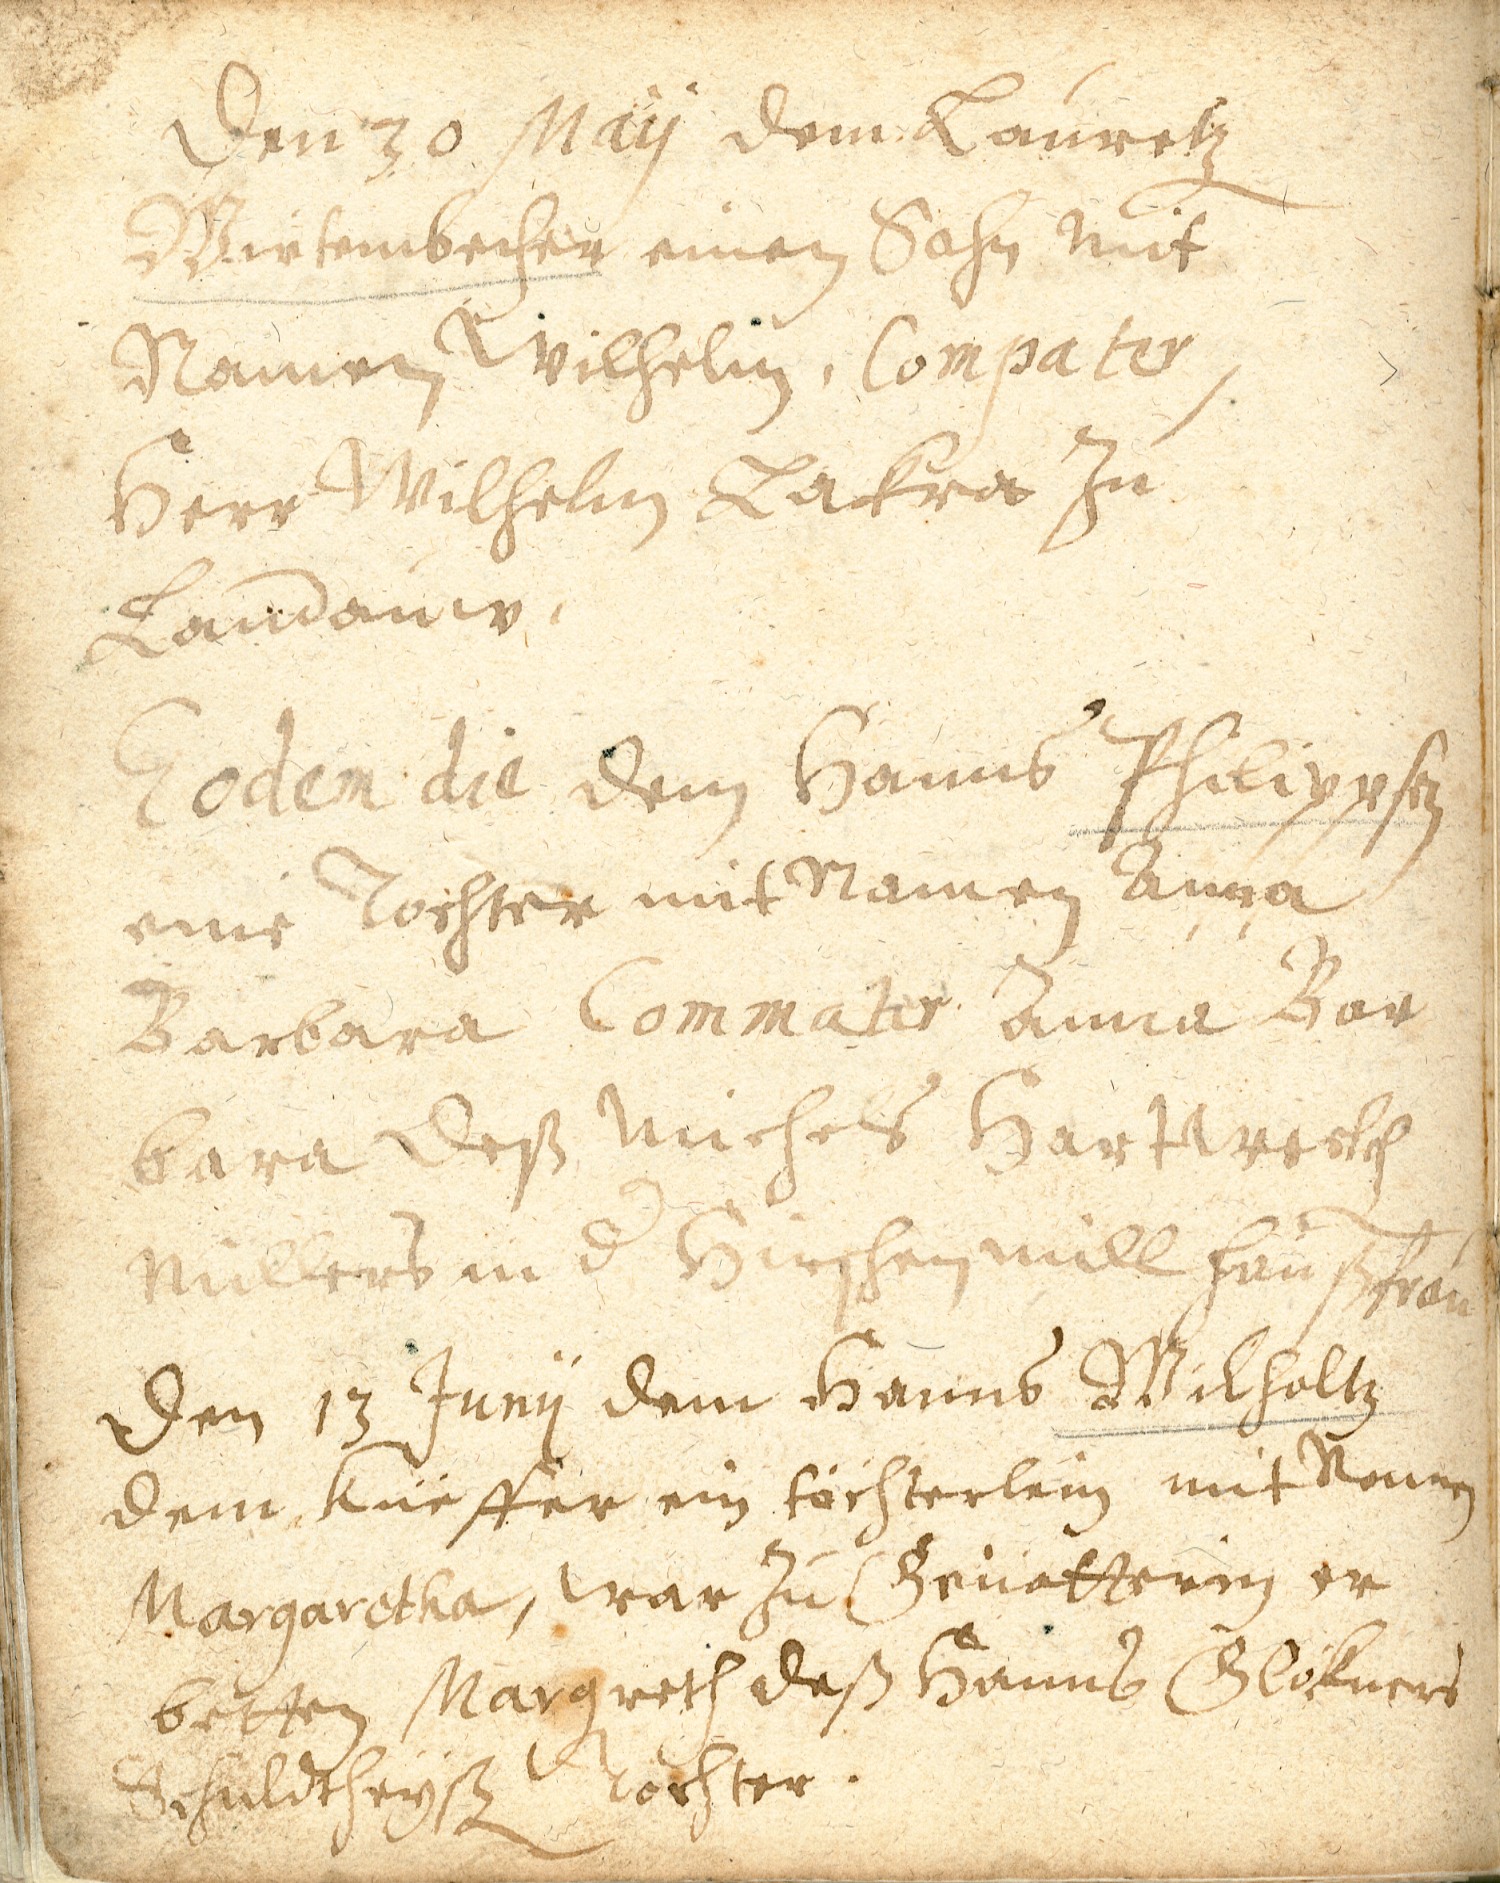 Den 30 Maÿ dem Lauretz
Wirtembecher einen Sohn mit
Namen Wilhelm, Compater
Herr Wilhelm Lakra zu
Landauw.
Eodem die dem Hanns Philippsen
eine Tochter mit Namen Anna
Barbara Commater Anna Bar
bara deß Michels
Müllers in d Hirschenmill Haußfrau
Den 13 Junÿ dem Hanns Wilholtz
dem Küeffer ein töchterlein mit Namen
Margaretha, war zu Gevatterin er
betten Margreth deß Hanns Glökners
Schuldtheÿß Tochter.